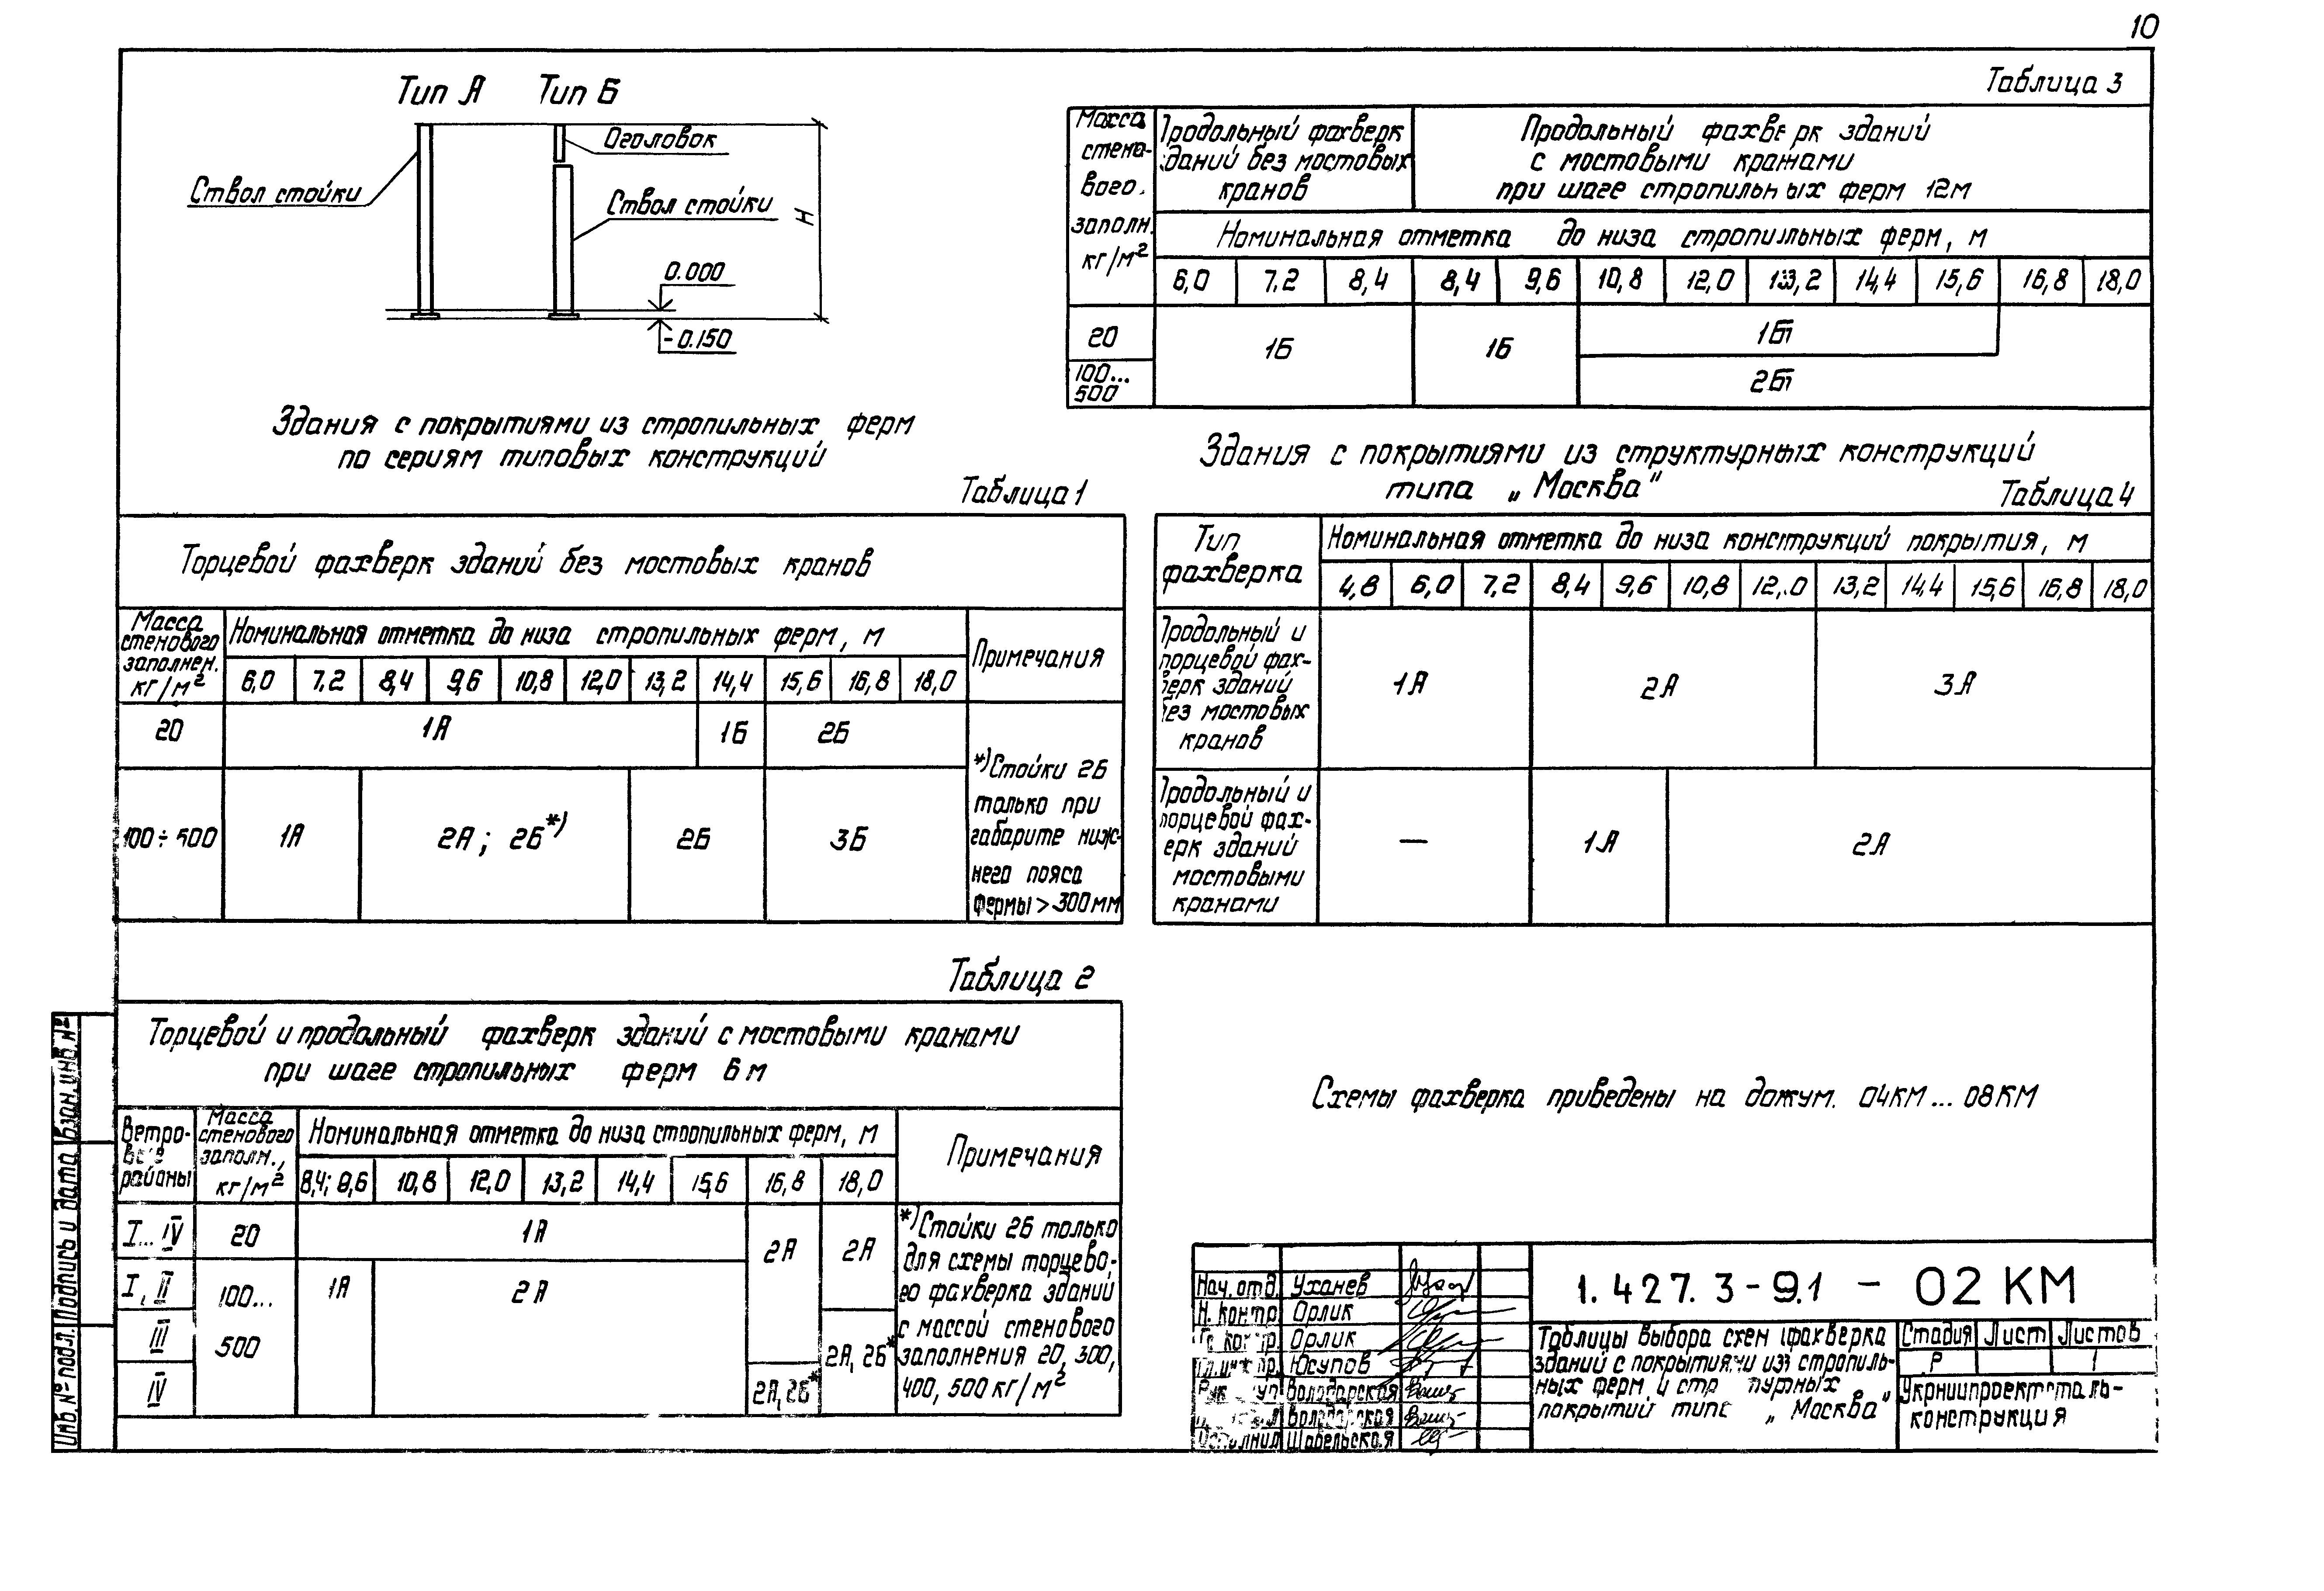 10
Тип А Тип Б
Оголовок
Ствол стойки
Ствол стойки
H
0.000
-0.150
Здания с покрытиями из стропильных ферм
по сериям типовых конструкций
Таблица 1
Торцевой фахверк зданий без мостовых кранов
Масса
стенового
заполнен.
кг/м²
Номинальная отметка до низа стропильных ферм, м
Примечания
6,0 7,2 8,4 9,6 10,8 12,0 13,2 14,4 15,6 16,8 18,0
20 1А 1Б 2Б
100÷500 1А 2А; 2Б*) 2Б 3Б
*) Стойки 2Б
только при
габарите ниж-
него пояса
фермы > 300мм
Таблица 2
Торцевой и продольный фахверк зданий с мостовыми кранами
при шаге стропильных ферм 6м
Ветро-
вые
районы
Масса
стенового
заполн.,
кг/м²
Номинальная отметка до низа стропильных ферм, м
Примечания
8,4; 9,6 10,8 12,0 13,2 14,4 15,6 16,8 18,0
I...IV 20 1А 2А 2А
I, II 100... 1А 2А
III 500 2А, 2Б*
IV 2А, 2Б*
*) Стойки 2Б только
для схемы торцево-
го фахверка зданий
с массой стенового
заполнения 20, 300,
400, 500 кг/м²
Таблица 3
Масса
стено-
вого
заполн.
кг/м²
Продольный фахверк
зданий без мостовых
кранов
Продольный фахверк зданий
с мостовыми кранами
при шаге стропильных ферм 12м
Номинальная отметка до низа стропильных ферм, м
6,0 7,2 8,4 8,4 9,6 10,8 12,0 13,2 14,4 15,6 16,8 18,0
20 1Б 1Б 1Бп
100...
500
2Бп
Здания с покрытиями из структурных конструкций
типа „Москва"
Таблица 4
Тип
фахверка
Номинальная отметка до низа конструкций покрытия, м
4,8 6,0 7,2 8,4 9,6 10,8 12,0 13,2 14,4 15,6 16,8 18,0
Продольный и
торцевой фах-
верк зданий
без мостовых
кранов
1А 2А 3А
Продольный и
торцевой фах-
верк зданий
мостовыми
кранами
— 1А 2А
Схемы фахверка приведены на докум. 04КМ...08КМ
Инв. № подл. Подпись и дата Взан. инв. №
Нач. отд. Уханев
Н. контр. Орлик
Гл. контр. Орлик
Гл. инж. пр. Юсупов
Володарская
Володарская
Исполнил Шабельская
1.427.3-9.1 - 02 КМ
Таблицы выбора схем фахверка
зданий с покрытиями из стропиль-
ных ферм и структурных
покрытий типа „Москва"
Стадия Лист Листов
Р 1
Укрниипроектсталь-
конструкция